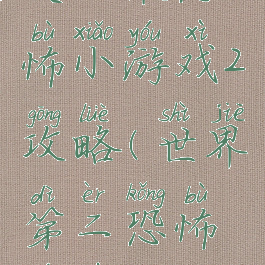 bù xiǎo yóu xì
怖小游戏2
gōng lüè shì jiè
攻略(世界
dì èr kǒng bù
第二恐怖